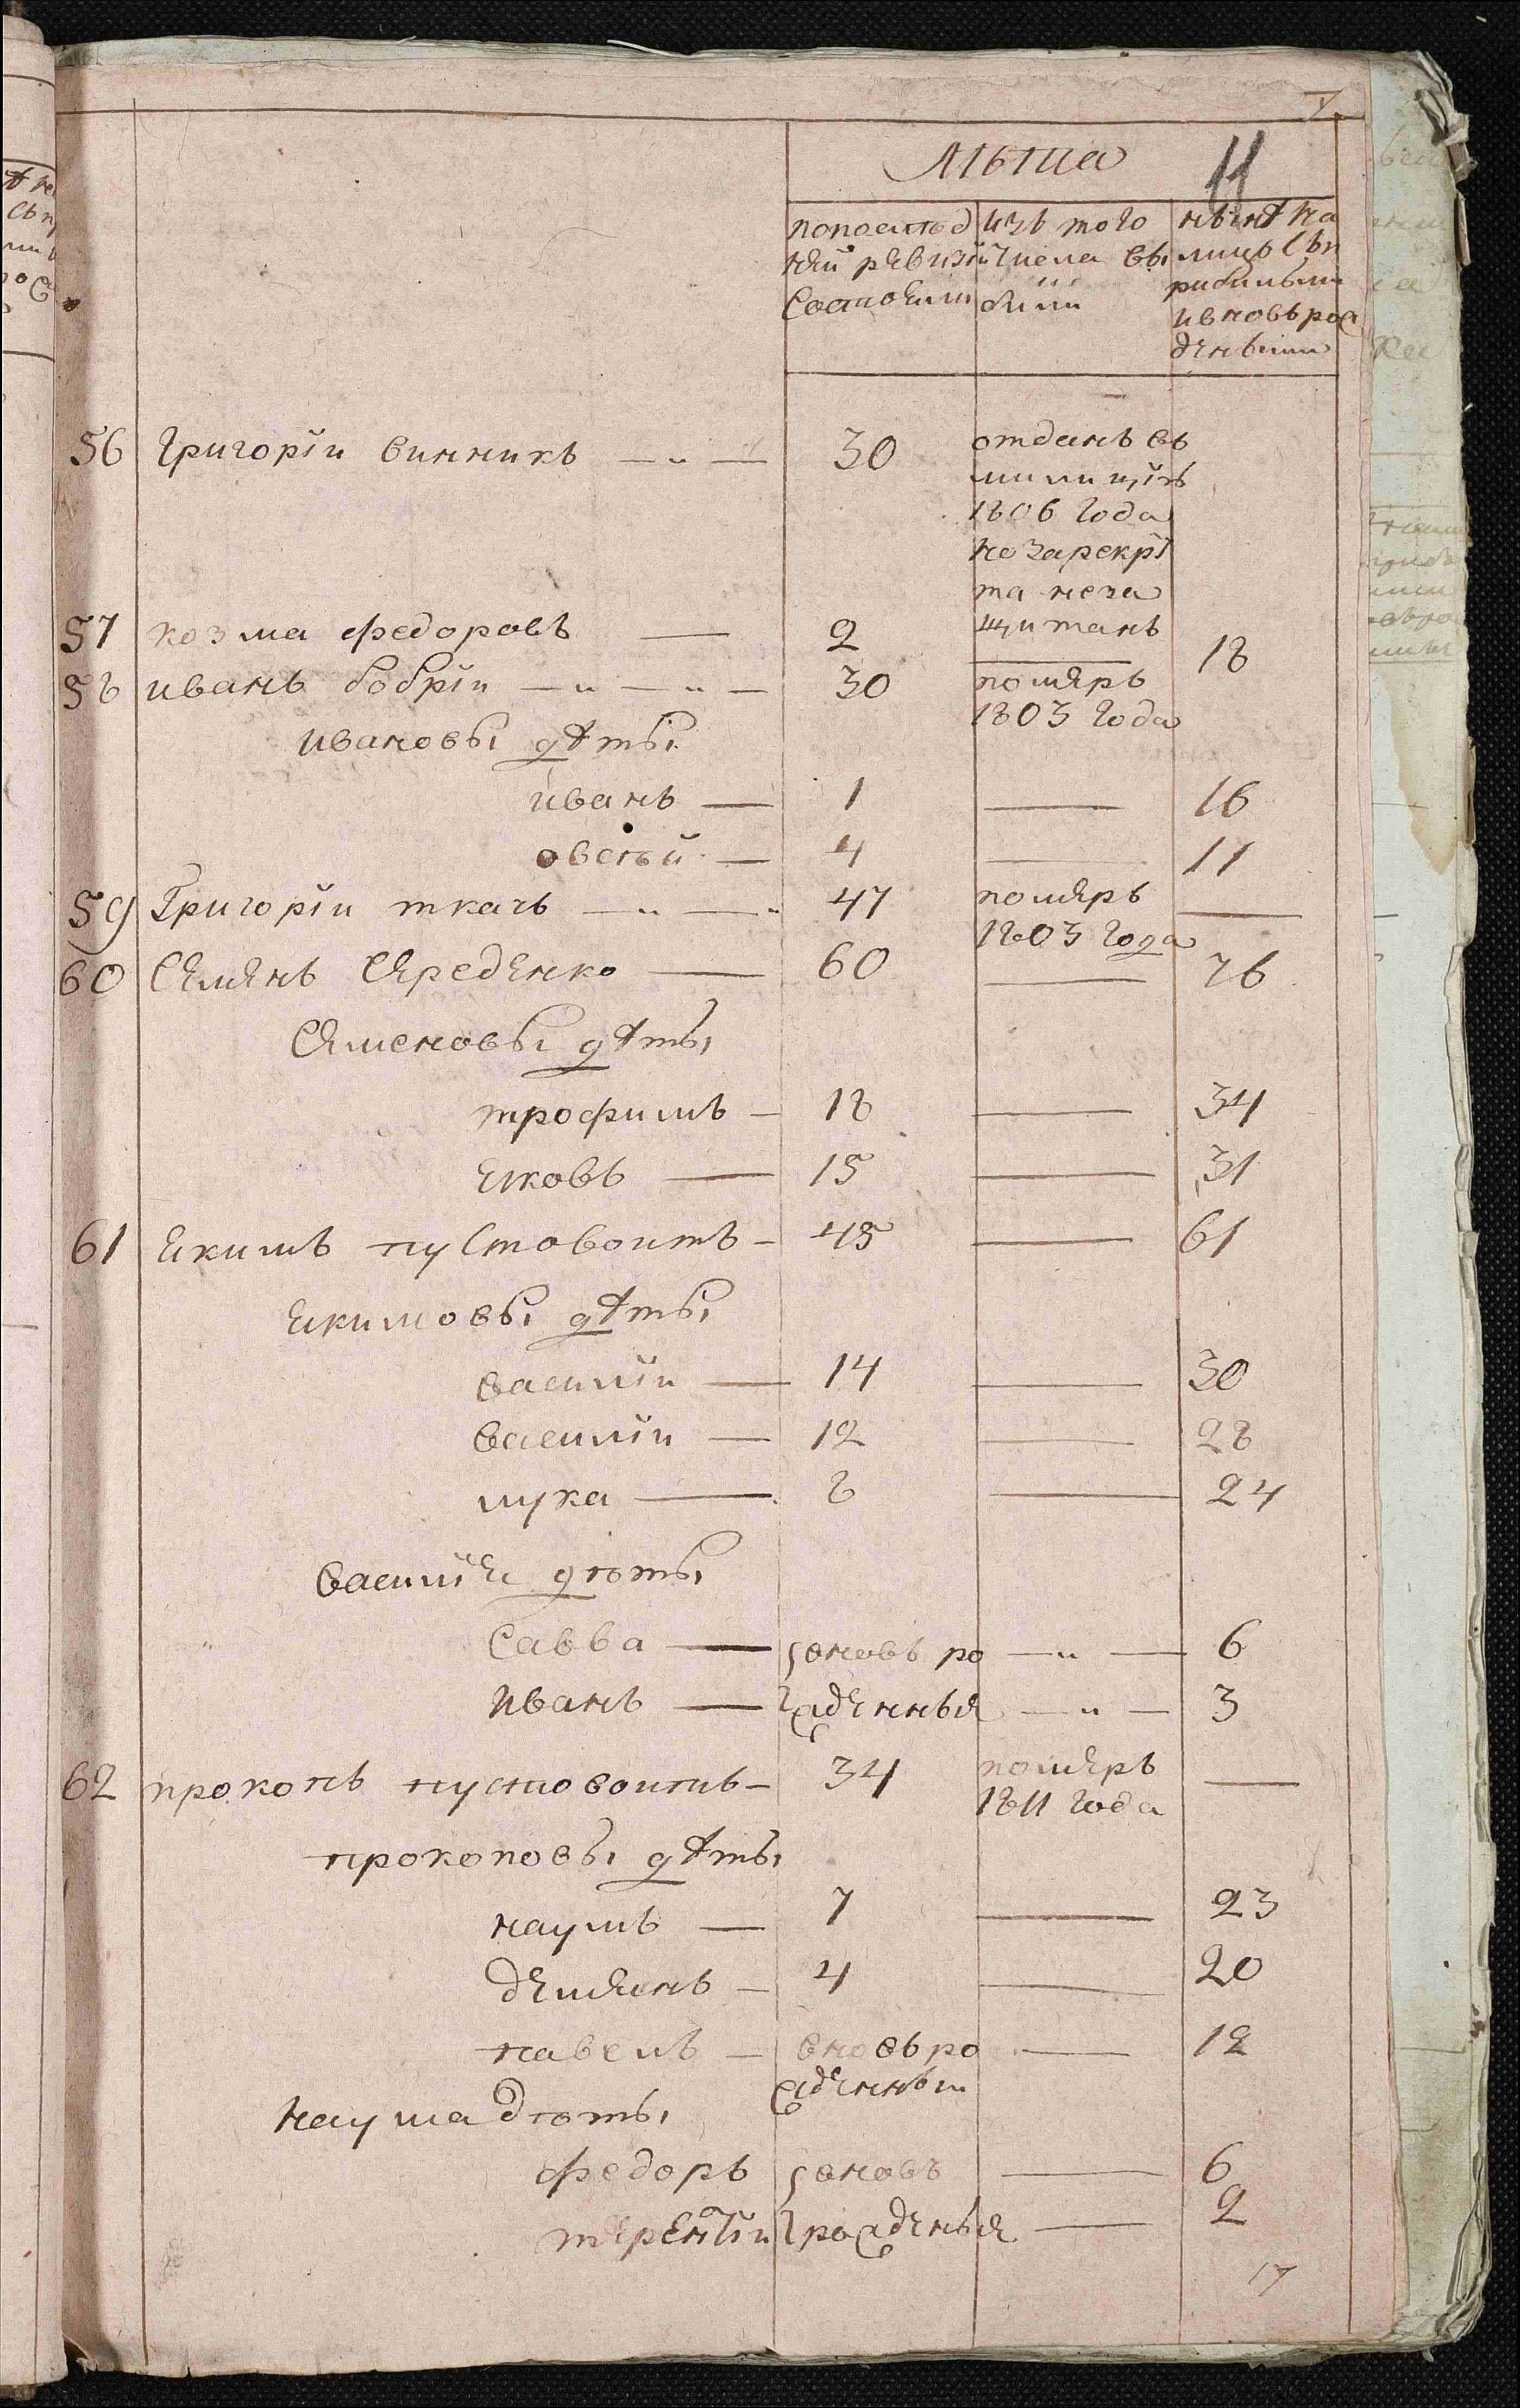 11
лѣта
попослѣд изъ того нынѣ на
ней ревизій числа вы лицо съп
состояли были рибылыми
ивновьрож
деныими
56 Григоріи винникъ — „ — 30 отданъ въ
милицію
1806 года
но зарекрѣ
та неза
щитанъ
57 козма федоровъ — 2 — 18
58 иванъ бобріи — „ — „ — 30 померъ
1803 года
ивановы дѣты
иванъ — 1 — 16
овсѣй — 4 — 11
59 Григоріи ткачъ — „ — „ 47 померъ —
1803 года
60 Семенъ Середенко — 60 — 76
Семеновы дѣты
трофимъ — 18 — 34
яковъ — 15 — 31
61 якимъ пустовоитъ — 45 — 61
якимовы дѣты
василіи — 14 — 30
василіи — 12 — 28
лука — 8 — 24
василія дѣты
Савва — вновь ро — „ — 6
иванъ — жденныя — „ — 3
62 прокопъ пустовоитъ — 34 померъ —
1811 года
прокоповы дѣты
наумъ — 7 — 23
демянъ — 4 — 20
павелъ — вновьро — 12
жденныи
наума дѣты
федоръ вновь — 6
терентіи рожденыя — 2
17